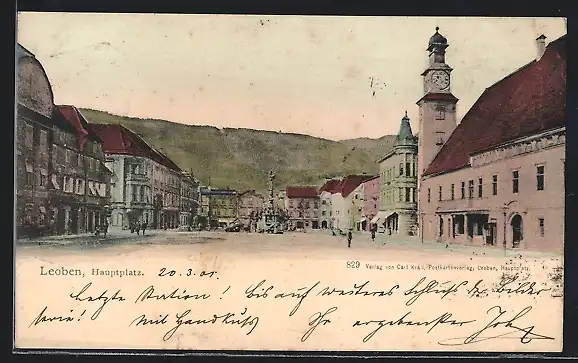 Leoben, Hauptplatz. 20.3.01.
829 Verlag von Carl Krall, Postkartenverlag, Leoben, Hauptplatz.
Letzte Station! bis auf weiteres Schluß der Bilder
serie! mit Handkuß Ihr ergebenster Joh.